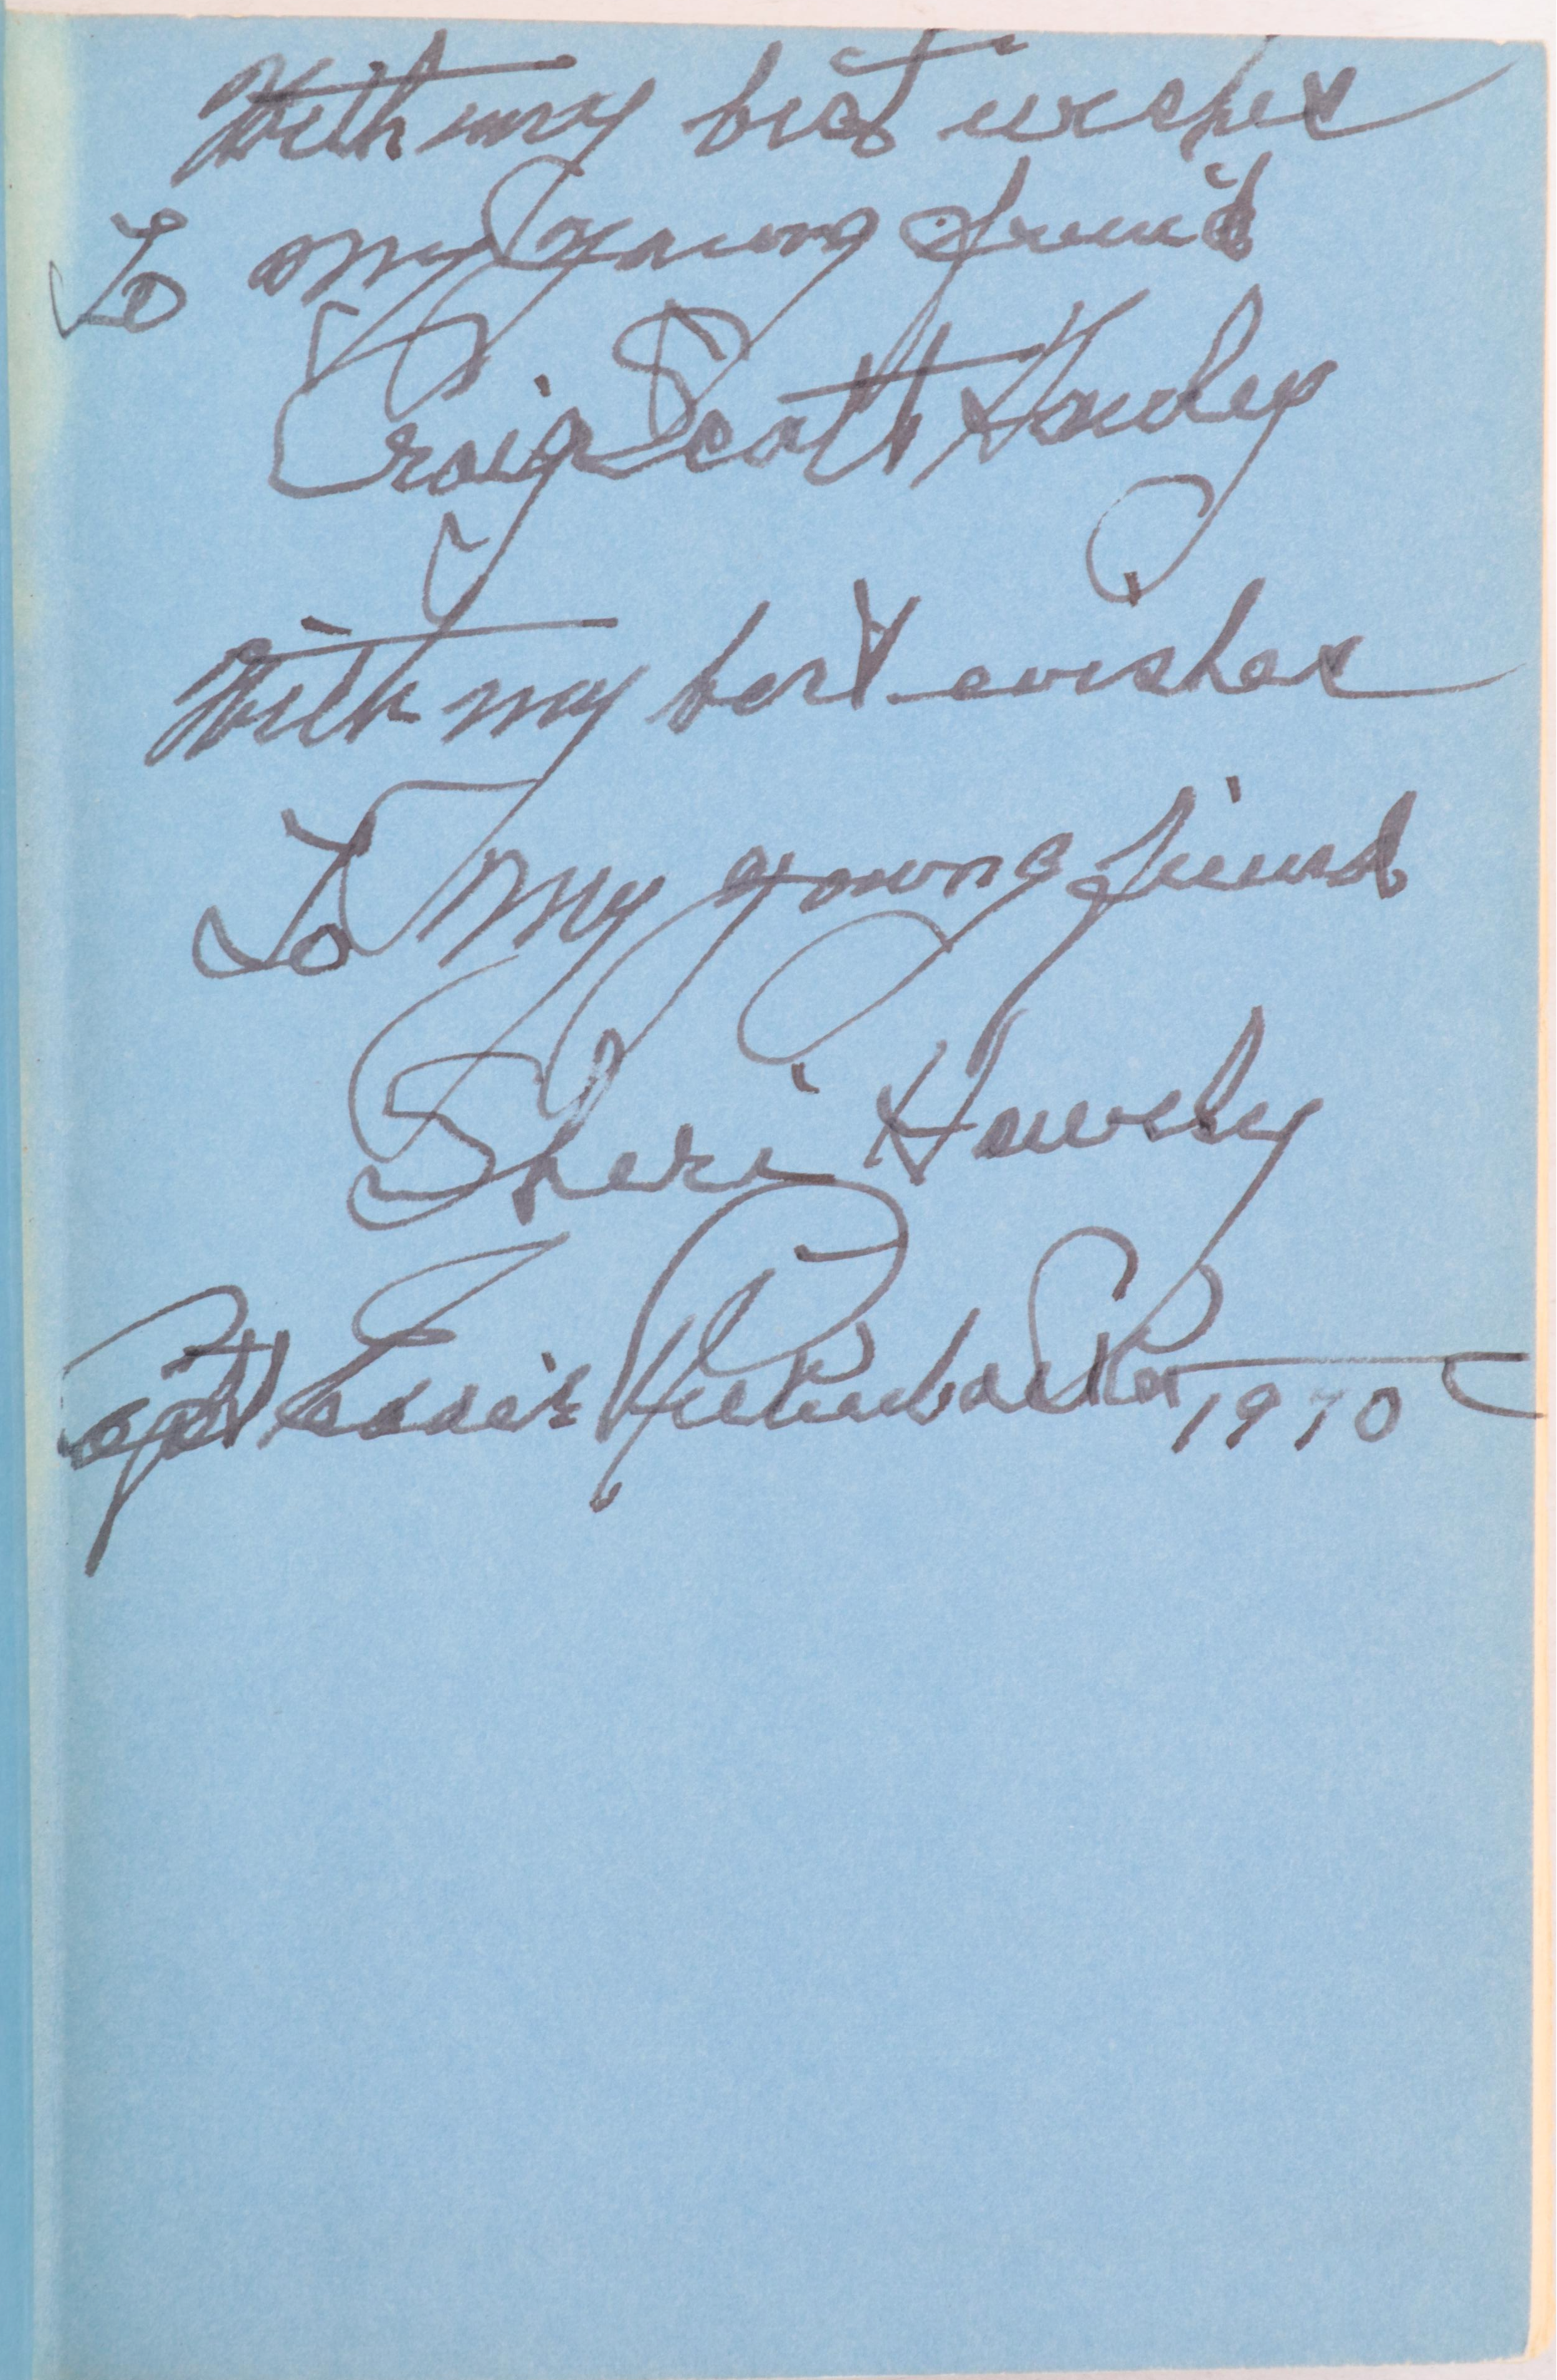 With my best wishes
To my young friend
Craig Scott Hawley
With my best wishes
To my young friend
Sheri Hawley
Capt Eddie Rickenbacker 1970